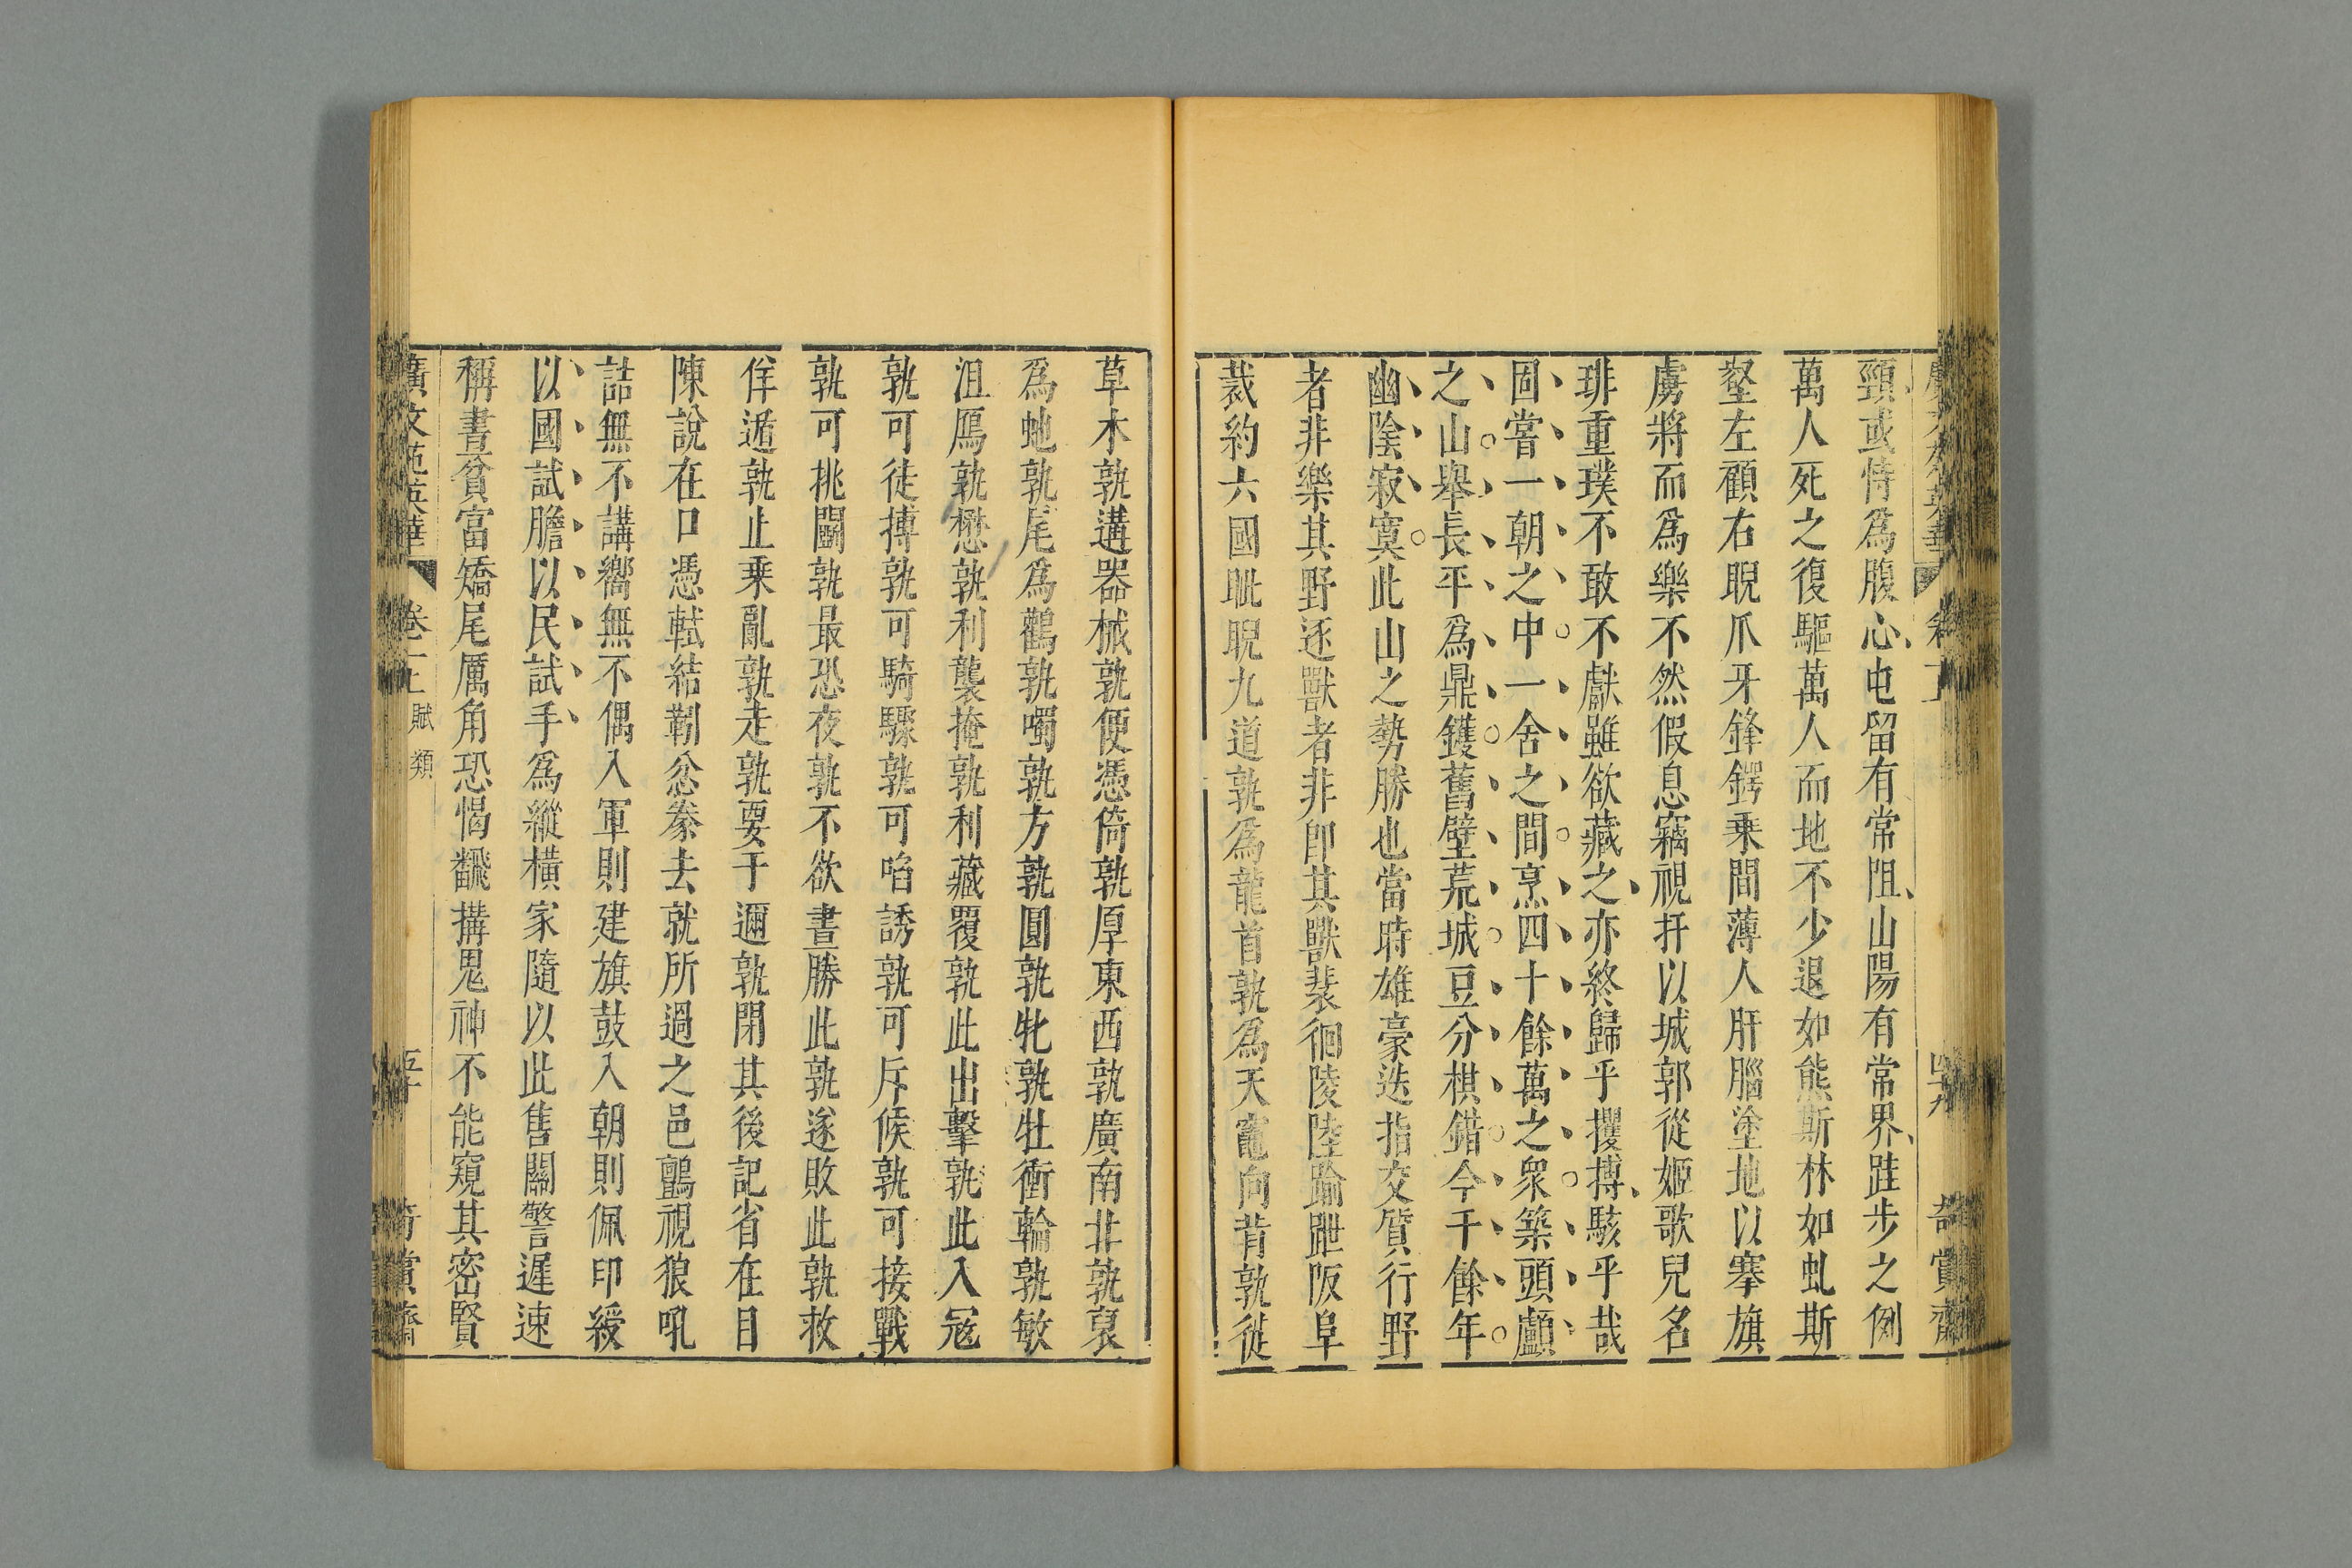 頸或恃為腹心屯留有常阻山陽有常界跬步之例
萬人死之復驅萬人而地不少退如熊斯林如虬斯
壑左顧右睨爪牙鋒鍔乗間薄人肝腦塗地以搴旗
虜將而為樂不然假息竊視扞以城郭從姬歌兒名
琲重璞不敢不獻雖欲藏之亦終歸乎攫搏駭乎哉
固嘗一朝之中一舍之間烹四十餘萬之衆築頭顱
之山舉長平為鼎鑊舊壁荒城豆分棋錯今千餘年
幽陰寂寞此山之勢勝也當時雄豪迭指交質行野
者非樂其野逐獸者非卽其獸裴徊陵陸踰跇阪阜
裁約六國眦睨九道孰為龍首孰為天竈向背孰從
草木孰溝器械孰便憑倚孰厚東西孰廣南北孰袤
為虵孰尾為鸛孰噣孰方孰圓孰牝孰牡衝輪孰敏
沮鴈孰懋孰利襲掩孰利藏覆孰此出擊孰此入冦
孰可徒摶孰可騎驟孰可啗誘孰可斥候孰可接戰
孰可挑鬭孰最恐夜孰不欲晝勝此孰遂敗此孰救
佯遁孰止乗亂孰走孰要于邇孰閉其後記省在目
陳說在口憑軾結靷忿絭去就所過之邑鸇視狼吼
詰無不講嚮無不偶入軍則建旗鼓入朝則佩印綬
以國試膽以民試手為縱橫家隨以此售關警遲速
稱晝貧富矯尾厲角恐愒飜搆鬼神不能窺其密賢
廣文苑英華 卷二上 賦類 五十 奇賞齋